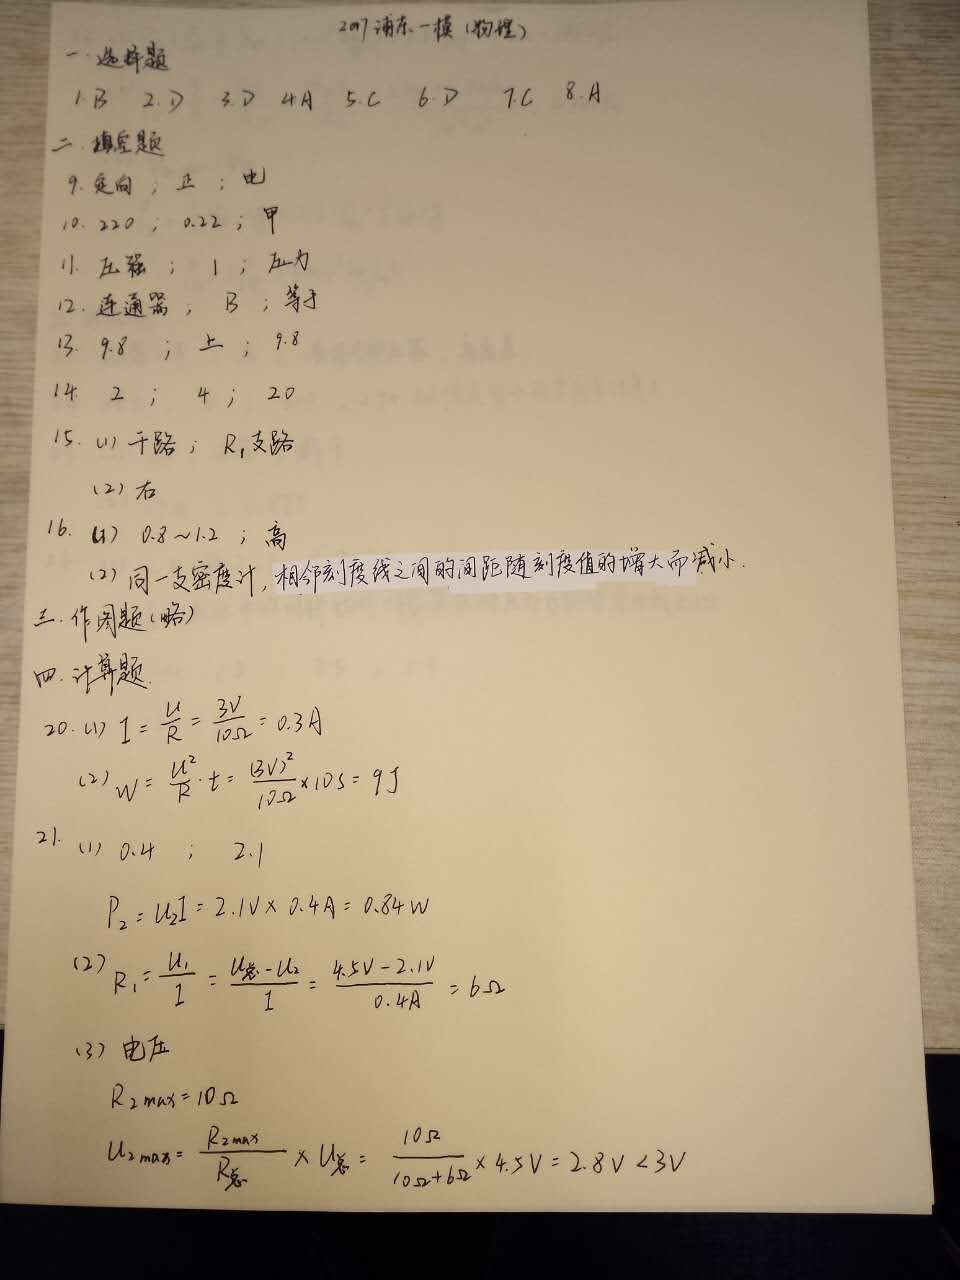 2017浦东一模（物理）
一.选择题
1.B 2.D 3.D 4.A 5.C 6.D 7.C 8.A
二.填空题
9.定向；正；电
10.220；0.22；甲
11.压强；1；压力
12.连通器；B；等于
13.9.8；上；9.8
14.2；4；20
15.(1)干路；R₁支路
(2)右
16.(1)0.8~1.2；高
(2)同一支密度计，相邻刻度线之间的间距随刻度值的增大而减小.
三.作图题(略)
四.计算题.
20.(1) I = U/R = 3V/10Ω = 0.3A
(2) W = U²/R·t = (3V)²/10Ω × 10s = 9J
21.(1) 0.4；2.1
P₂ = U₂I = 2.1V × 0.4A = 0.84W
(2) R₁ = U₁/I = (U总-U₂)/I = (4.5V-2.1V)/0.4A = 6Ω
(3) 电压
R₂max = 10Ω
U₂max = R₂max/R总 × U总 = 10Ω/(10Ω+6Ω) × 4.5V = 2.8V < 3V